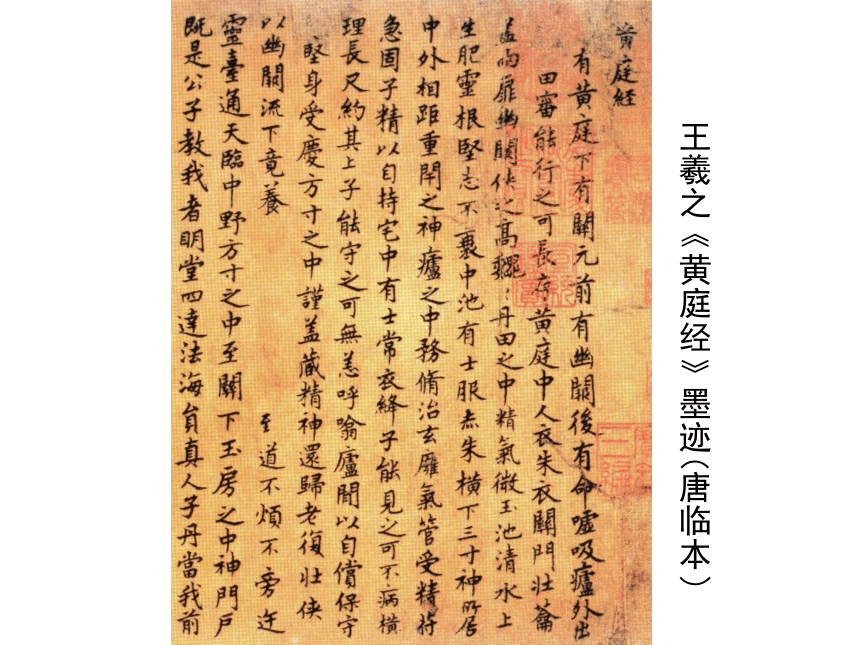 黄庭経
有黄庭下有關元前有幽闕後有命嘘吸廬外出
田審能行之可長存黄庭中人衣朱衣關門壮蘥
幽闕侠之高巍丹田之中精氣微玉池清水上
生肥靈根堅志不衰中池有士服赤朱横下三寸神所居
中外相距重閇之神廬之中務脩治玄廱氣管受精苻
急固子精以自持宅中有士常衣絳子能見之可不病横
理長尺約其上子能守之可無恙呼噏廬間以自償保守
堅身受慶方寸之中謹盖藏精神還歸老復壮侠
以幽闕流下竟養 至道不煩不旁迕
靈臺通天臨中野方寸之中至關下玉房之中神門戸
既是公子教我者明堂四達法海貟真人子丹當我前
王羲之《黄庭经》墨迹(唐临本)